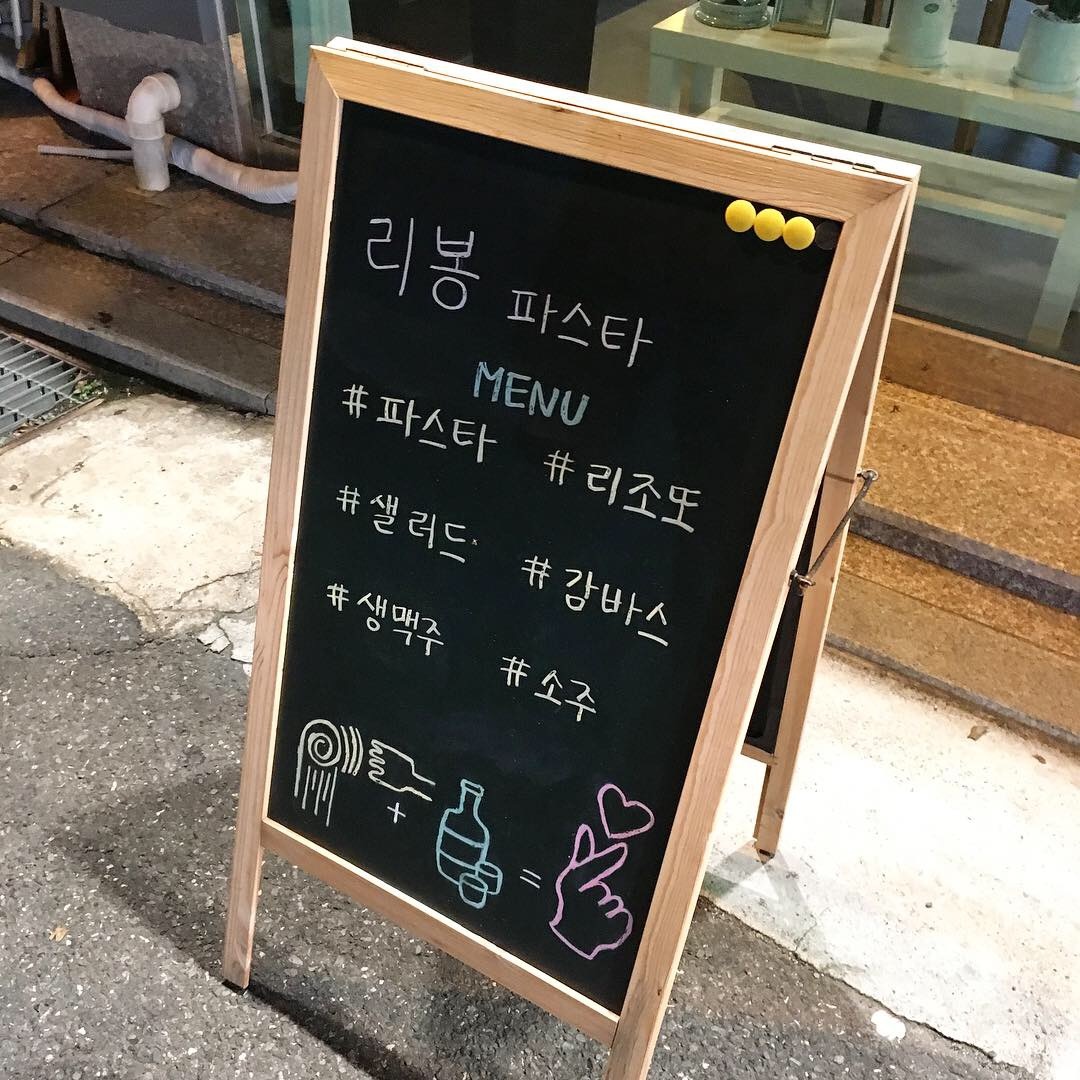 리봉 파스타
MENU
#파스타
#리조또
#샐러드
#감바스
#생맥주
#소주
+ =